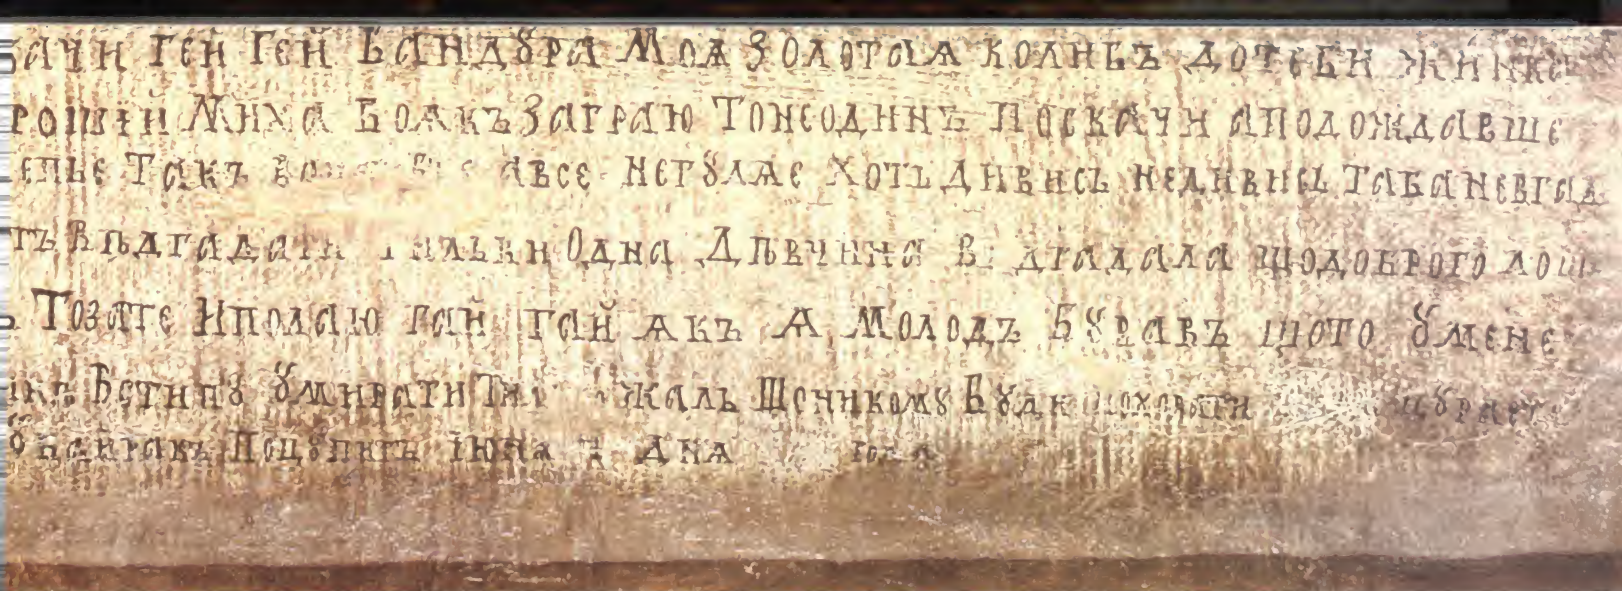 ЗАЧИ ГЕЙ ГЕЙ БАНДꙊРА МОѦ ЗОЛОТАѦ КОЛИБЪ ДОТЕБИ ЖИНКА
РОШИЙ МИХА БОѦКЪ ЗАГРАЮ ТОНЕОДИНЪ ПОСКАЧИ АПОДОЖДАВШЕ
ЕПЬЕ ТАКЪ АВСЕ НЕГꙊЛѦЕ ХОТЬ ДИВИСЬ НЕДИВИСЬ ТАБАНЕВГАД
ТЬ ВѢДГАДАТИ ОДНА ДѢВЧИНА ДГАДАЛА ЩОДОБРОГО ЛОШ
ТОЗАТЕ ИПОЛАЮ ГАЙ ГАЙ ѦКЪ Ѧ МОЛОДЪ БꙊВАВЪ ЩОТО ꙊМЕНЕ
ВСТИПꙊ ꙊМИРАТИ ЖАЛЬ ЩОНИКОМꙊ БꙊДЕ ПОХОВАТИ
БАЙРАКЪ ПОЦꙊПИТЬ ІЮНА ДНѦ